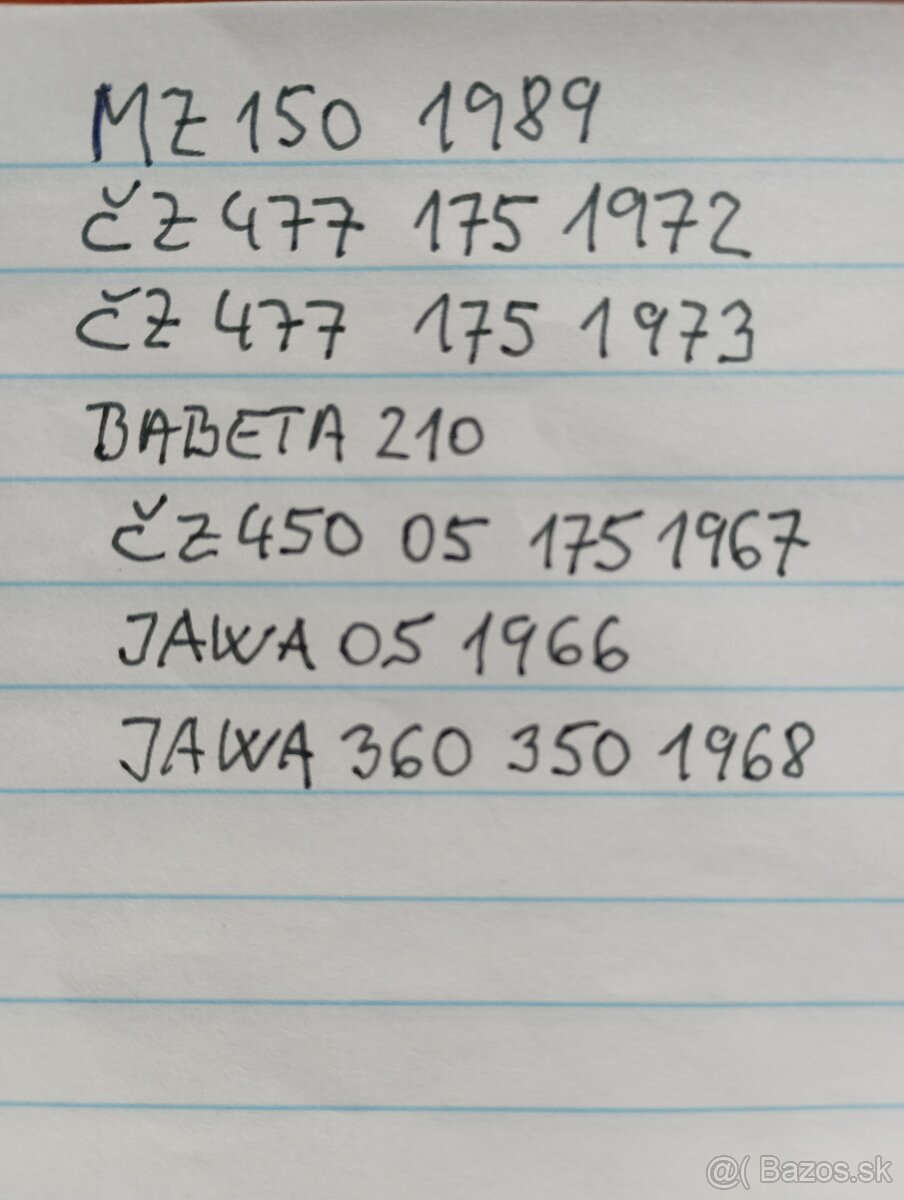 MZ 150 1989
ČZ 477 175 1972
ČZ 477 175 1973
BABETA 210
ČZ 450 05 175 1967
JAWA 05 1966
JAWA 360 350 1968
@( Bazos.sk